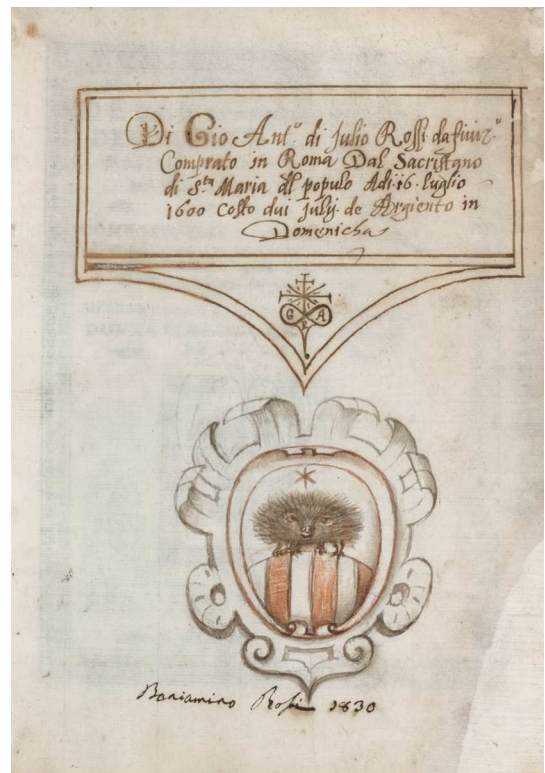 Di Gio Ant.º di Julio Rossi da fiviz.º
Comprato in Roma Dal Sacristano
di S.ta Maria dl populo Adi 16. luglio
1600 Costo dui Julij. de Argiento in
Domenicha
G R A
Baniamino Rossi 1830